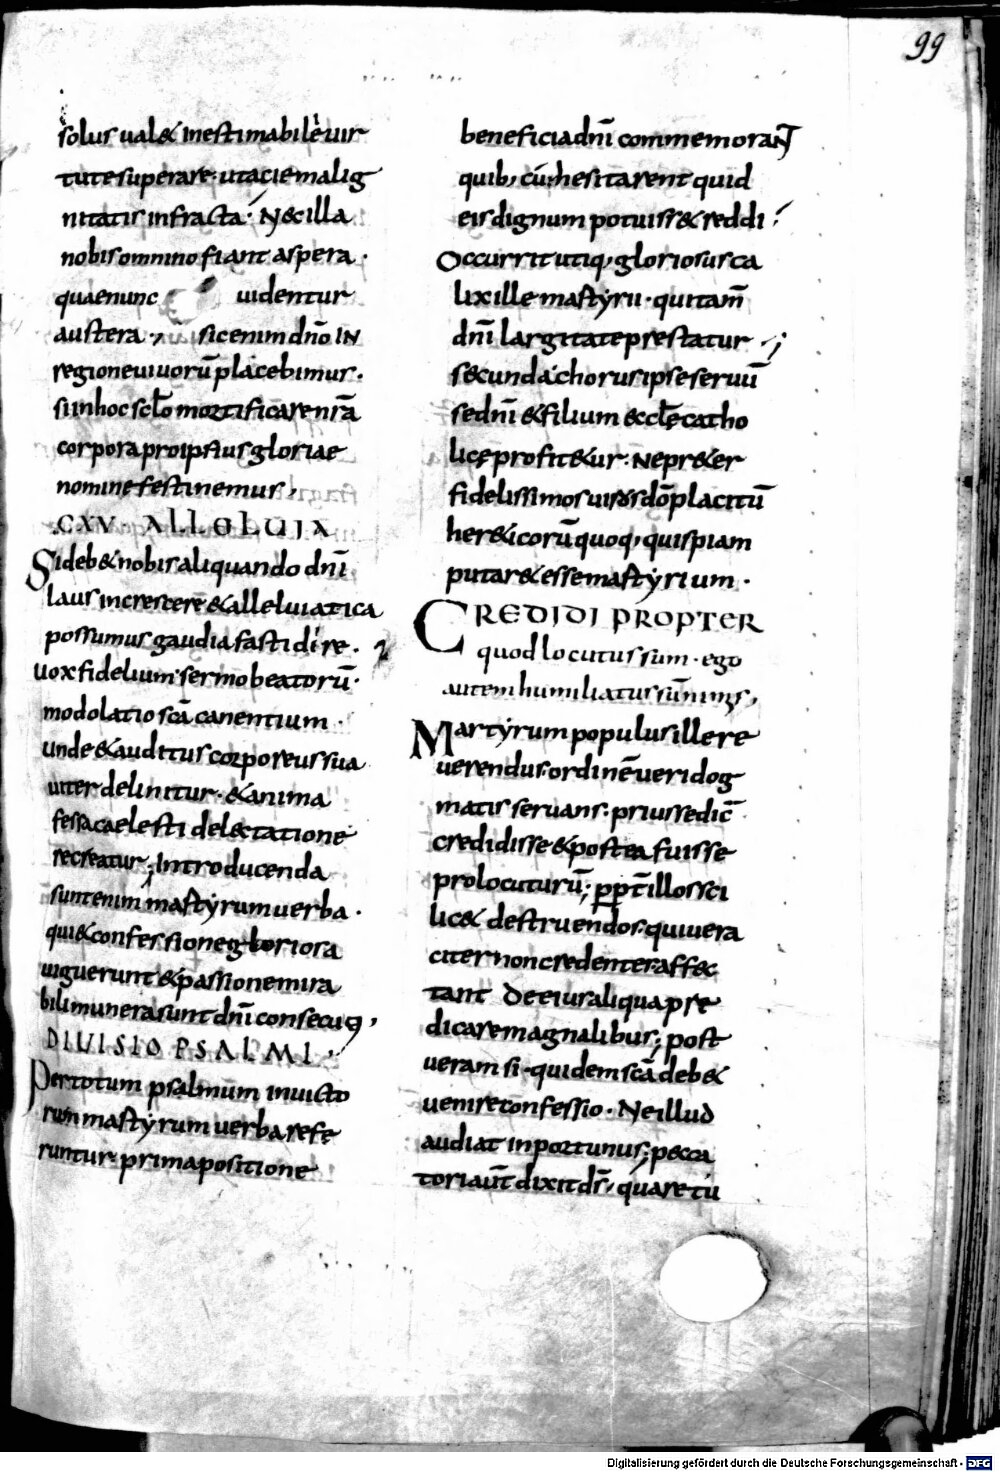 99
solus ual& inestimabile uir
tute superare· ut acie malig
nitatis infracta· N& illa
nobis omnino fiant aspera·
quae nunc uidentur
austera·, sic enim dño IN
regione uiuorū placebimus·
si in hoc sclō mortificare nr̄a
corpora pro ipsius gloriae
nomine festinemus,
CXV· ALLELUIA
Si deb& nobis aliquando dn̄i
laus increscere & alleluiatica
possumus gaudia fastidire·
uox fidelium· sermo beatorū·
modolatio sc̄a canentium·
unde & auditus corporeus sua
uiter delinitur· & anima
fessa caelesti delectatione
recreatur; Introducenda
sunt enim martyrum uerba·
qui & confessione gloriora
uiguerunt & passione mira
bili munera sunt dn̄i consecuti,
DIUISIO PSALMI
Per totum psalmum inuicto
rum martyrum uerba refe
runtur· prima positione
beneficia dn̄i commemoraNT
quib; cū hesitarent quid
eis dignum potuiss& reddi·
Occurrit utiq; gloriosus ca
lix ille martyrii· qui tam̄
dn̄i largitate prestatur·;
Secunda· chorus ipse seruū
se dn̄i & filium eccl̄e catho
licę profit&ur· Ne pr&er
fidelissimos uiros dō placitū
her&icorū quoq; quispiam
putar& esse martyrium·
CREDIDI PROPTER
quod locutus sum· ego
autem humiliatus sū nimis,
Martyrum populus ille re
uerendus· ordinē ueri dog
matis seruans· prius se dic̄
credidisse & postea fuisse
prolocuturū; ppt̄ illos sci
lic& destruendos· qui uera
citer non credentes· aff&
tant de eius aliqua pre
dicare magnalibus; post
ueram si·quidem sc̄a deb&
uenire confessio· Ne illud
audiat inportunus; pecca
tori aūt dixit dr̄, quare tu
Digitalisierung gefördert durch die Deutsche Forschungsgemeinschaft - DFG